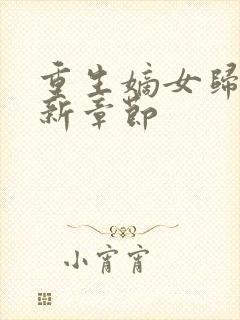 重生嫡女歸
新章節
小宵宵